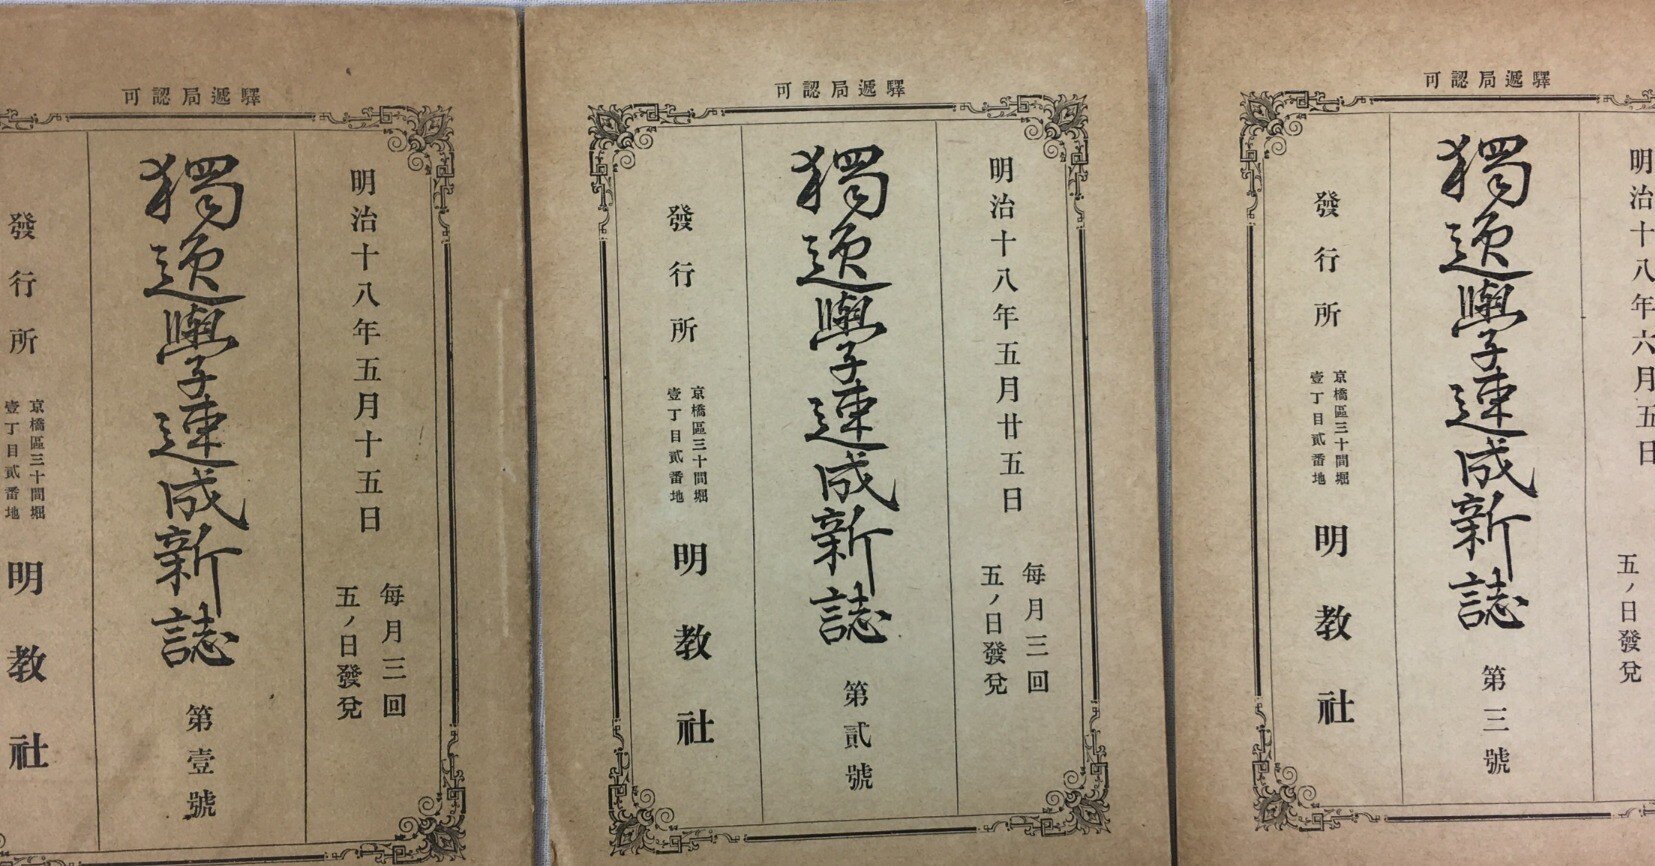 驛遞局認可
明治十八年五月十五日
毎月三回
五ノ日發兌
獨逸學速成新誌 第壹號
發行所
京橋區三十間堀
壹丁目貳番地
明教社
驛遞局認可
明治十八年五月廿五日
毎月三回
五ノ日發兌
獨逸學速成新誌 第貳號
發行所
京橋區三十間堀
壹丁目貳番地
明教社
驛遞局認可
明治十八年六月五日
五ノ日發兌
獨逸學速成新誌 第三號
發行所
京橋區三十間堀
壹丁目貳番地
明教社